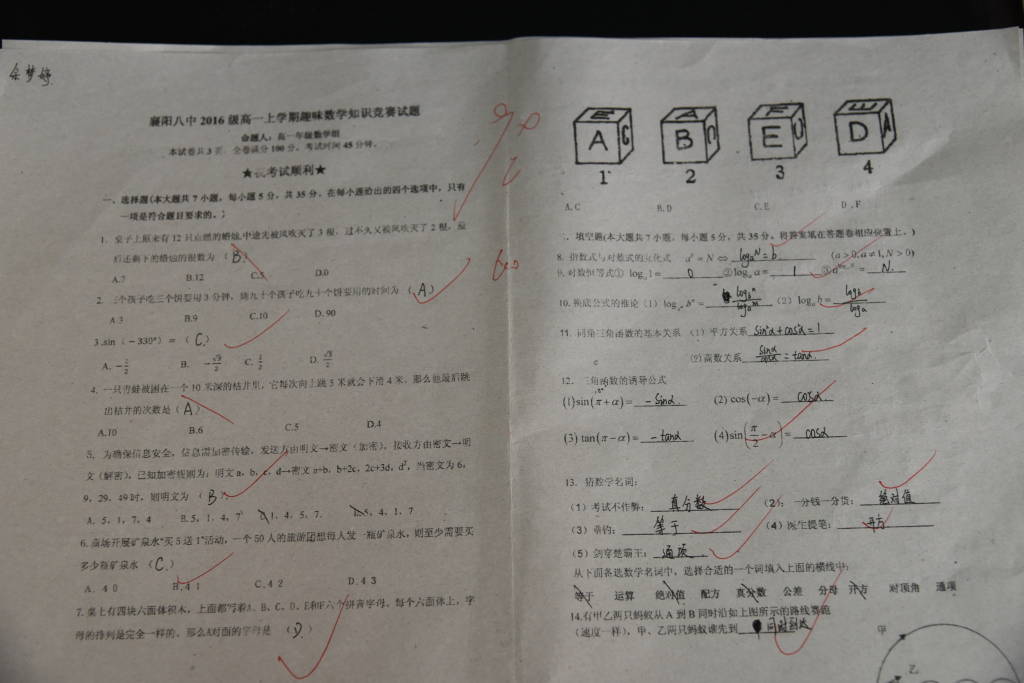 余梦婷
襄阳八中2016级高一上学期趣味数学知识竞赛试题
命题人:高一年级数学组
本试卷共3页 全卷满分100分。考试时间45分钟。
★祝考试顺利★
一、选择题(本大题共7小题,每小题5分,共35分。在每小题给出的四个选项中,只有
一项是符合题目要求的。)
1. 桌子上原来有12只点燃的蜡烛,中途先被风吹灭了3根,过不久又被风吹灭了2根,最
后还剩下的蜡烛的根数为 (B)
A.7 B.12 C.5 D.0
2. 三个孩子吃三个饼要用3分钟,则九十个孩子吃九十个饼要用的时间为 (A)
A.3 B.9 C.10 D.90
3.sin(-330°)= (C)
A. -1/2 B. -√3/2 C. 1/2 D. √3/2
4. 一只青蛙被困在一个10米深的枯井里,它每次向上跳5米就会下滑4米,那么他最后跳
出枯井的次数是(A)
A.10 B.6 C.5 D.4
5. 为确保信息安全,信息需加密传输,发送方由明文→密文(加密),接收方由密文→明
文(解密),已知加密规则为:明文a,b,c,d→密文a+b,b+2c,2c+3d,d²,当密文为6,
9,29,49时,则明文为 (B)
A. 5,1,7,4 B. 5,1,4,7 1,4,5,7. 5,4,1,7
6. 商场开展矿泉水“买5送1”活动,一个50人的旅游团想每人发一瓶矿泉水,则至少需要买
多少瓶矿泉水(C)
A. 40 B. 41 C. 42 D. 43
7. 桌上有四块六面体积木,上面都写着A、B、C、D、E和F六个拼音字母,每个六面体上,字
母的排列是完全一样的。那么A对面的字母是 (D)
90
A C B E D A
1 2 3 4
A. C B. D C. E D. F
二、填空题(本大题共7小题,每小题5分,共35分。将答案填在答题卷相应位置上。)
8. 指数式与对数式的互化式 aᵇ = N ⇔ logₐN=b (a>0,a≠1,N>0)
9. 对数恒等式① logₐ1= 0 ②logₐa= 1 ③ = N.
10. 换底公式的推论(1) (2) logₐb= logb/loga
11. 同角三角函数的基本关系 (1)平方关系 sin²α+cos²α=1
(2)商数关系 sinα/cosα=tanα.
12. 三角函数的诱导公式
(1)sin(π+α)= -sinα. (2) cos(-α)= cosα.
(3) tan(π-α)= -tanα. (4)sin(π/2-α)= cosα
13. 猜数学名词:
(1)考试不作弊: 真分数 (2)、一分钱一分货: 绝对值
(3) : 等于 (4)医生提笔: 开方
(5)剑穿楚霸王: 通项
从下面备选数学名词中,选择合适的一个词填入上面的横线中:
等于 运算 绝对值 配方 真分数 公差 分母 开方 对顶角 通项
14.有甲乙两只蚂蚁从A到B同时沿如上图所示的路线赛跑
(速度一样),甲、乙两只蚂蚁谁先到 同时到达
甲
乙